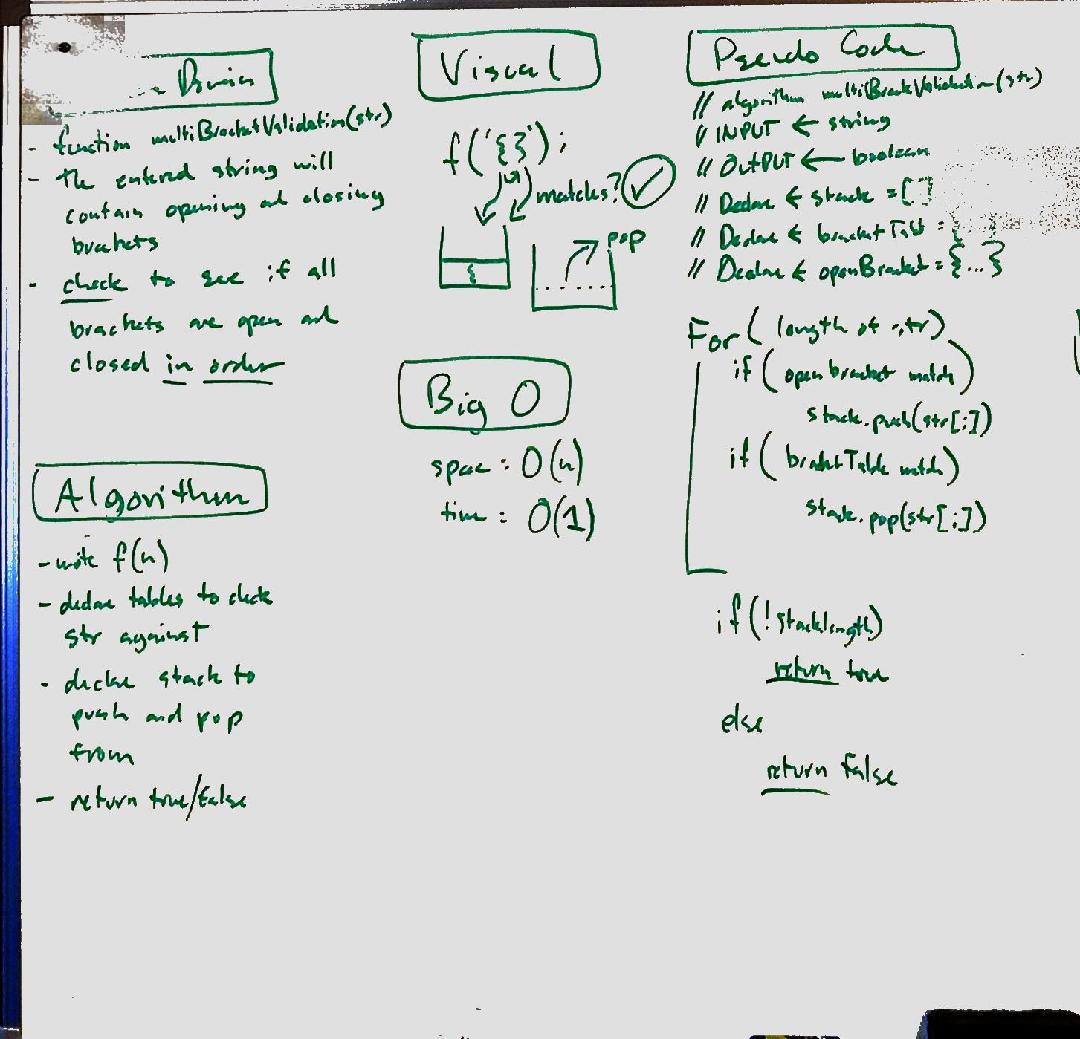 Domain
- function multiBracketValidation(str)
- The entered string will
contain opening and closing
brackets
- check to see if all
brackets are open and
closed in order
Algorithm
- write f(n)
- declare tables to check
str against
- declare stack to
push and pop
from
- return true/false
Visual
f('{}');
matches? ✓
{
pop
Big O
space : O(n)
time : O(1)
Pseudo Code
// algorithm multiBracketValidation(str)
// INPUT ← string
// OutPUT ← boolean
// Declare ← stack = []
// Declare ← bracketTabl = {
// Declare ← openBracket = {...}
For (length of str)
if (open bracket match)
stack.push(str[i])
if (bracketTable match)
stack.pop(str[i])
if (!stacklength)
return true
else
return false